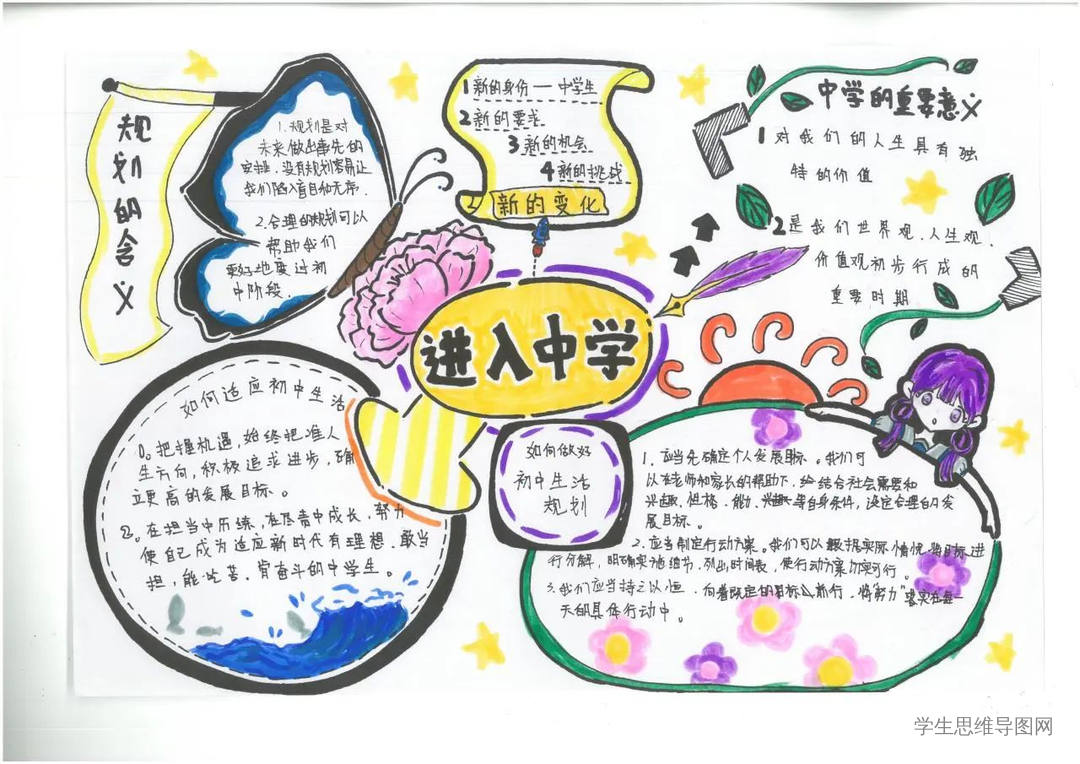 规划的含义
1.规划是对
未来做出事先的
安排,没有规划容易让
我们陷入盲目和无序.
2.合理的规划可以
帮助我们
更好地要过初
中阶段.
1新的身份——中学生
2新的要求
3新的机会
4新的挑战
新的变化
中学的重要意义
1对我们的人生具有独
特的价值
2是我们世界观.人生观.
价值观初步行成的
重要时期
进入中学
如何适应初中生活
①。把握机遇,始终把准人
生方向,积极追求进步,确
立更高的发展目标。
②。在担当中历练,在尽责中成长,努力
使自己成为适应新时代有理想.敢当
担,能吃苦.肯奋斗的中学生。
如何做好
初中生活
规划
1.应当先确定个人发展目标。我们可
以在老师和家长的帮助下,结合社会需要和
兴趣.性格.能力.等自身条件,设定合理的发
展目标。
2.应当制定行动方案。我们可以根据实际情况,将目标进
行分解,明确实施细节,列出时间表,使行动方案切实可行。
3.我们应当持之以恒.向着既定的目标前行,将努力"落实在每一
天的具体行动中。
学生思维导图网